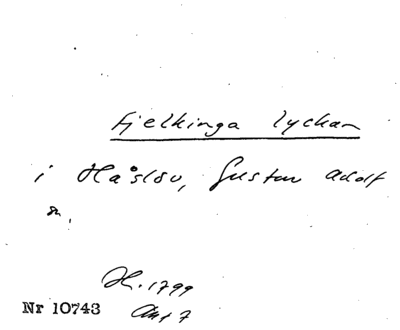 Fjelkinga lyckan
i Håslöv, Gustav Adolf
sn.
H. 1799
Akt 7
Nr 10743